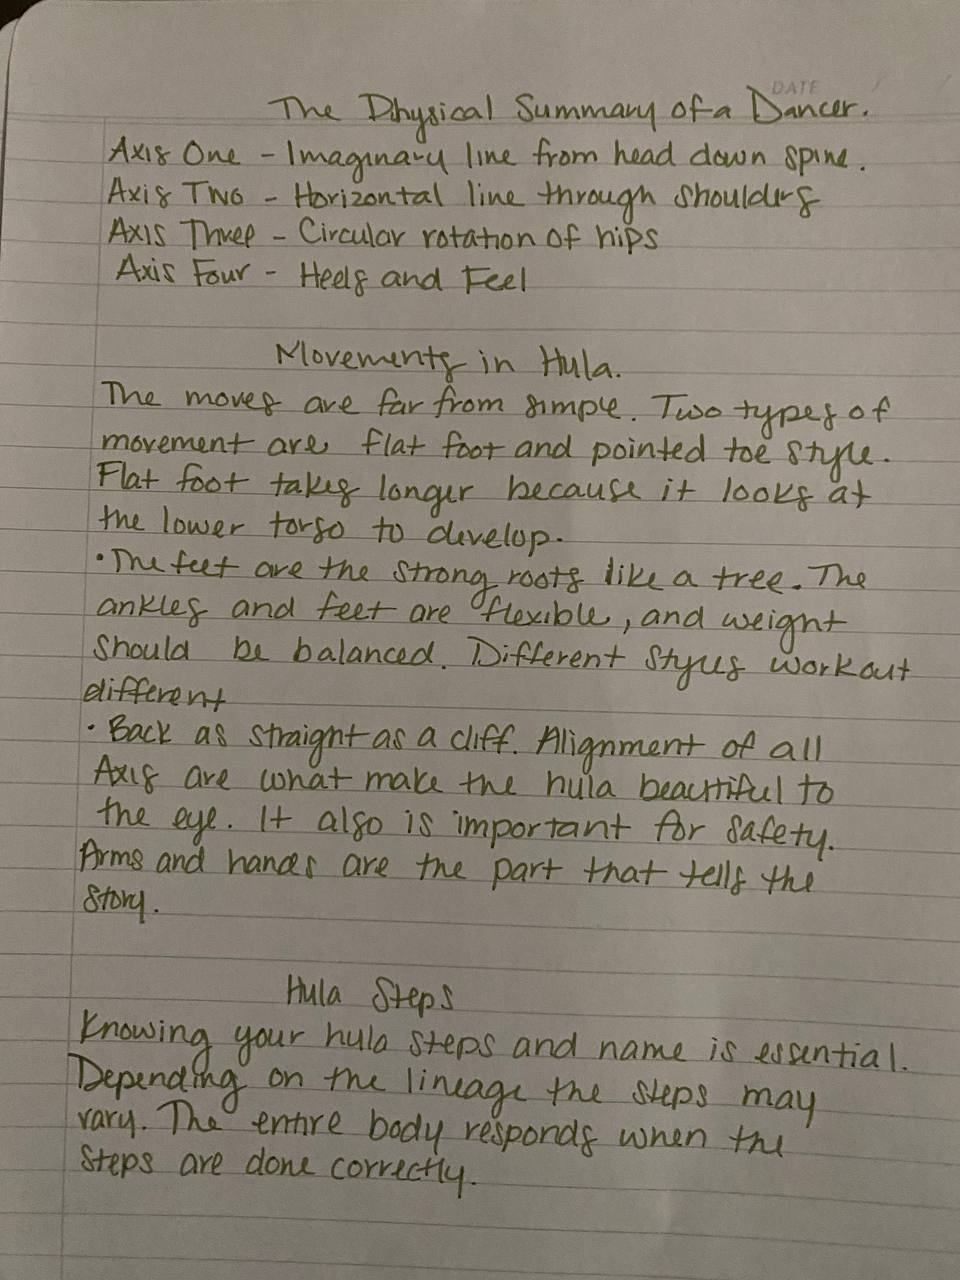 DATE
The Physical Summary of a Dancer.
Axis One - Imaginary line from head down spine.
Axis Two - Horizontal line through shoulders
Axis Three - Circular rotation of hips
Axis Four - Heels and Feel
Movements in Hula.
The moves are far from simple. Two types of
movement are flat foot and pointed toe style.
Flat foot takes longer because it looks at
the lower torso to develop.
• The feet are the strong roots like a tree. The
ankles and feet are flexible, and weight
should be balanced. Different styles workout
different
• Back as straight as a cliff. Alignment of all
Axis are what make the hula beautiful to
the eye. It also is important for safety.
Arms and hands are the part that tells the
story.
Hula Steps
Knowing your hula steps and name is essential.
Depending on the lineage the steps may
vary. The entire body responds when the
steps are done correctly.